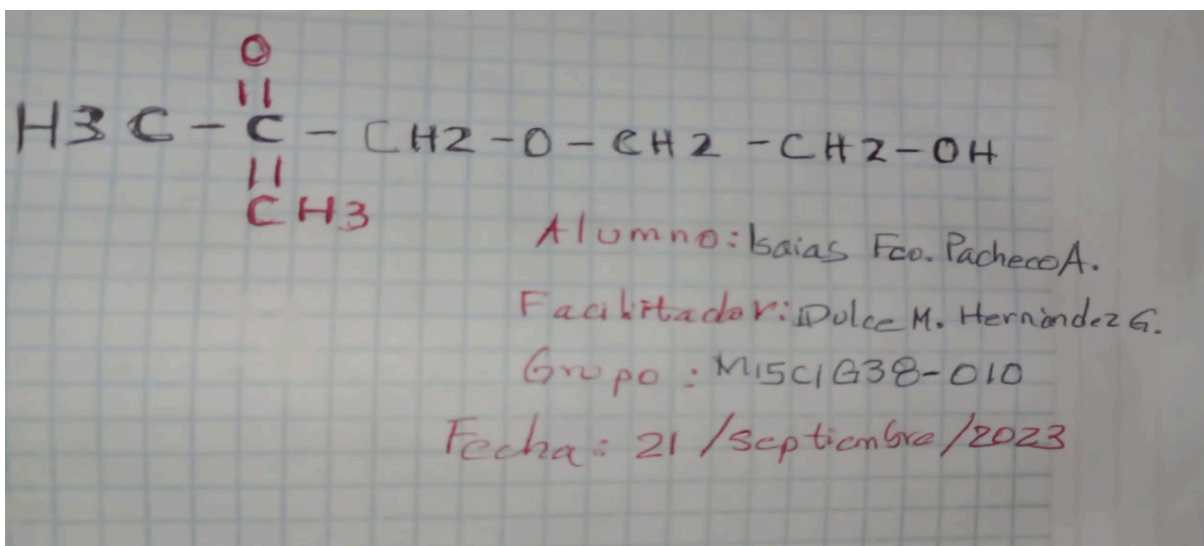 O
||
H3C - C - CH2 - O - CH2 - CH2 - OH
||
CH3
Alumno: Isaias Fco. Pacheco A.
Facilitador: Dulce M. Hernández G.
Grupo: M15C1G38-010
Fecha: 21/septiembre/2023